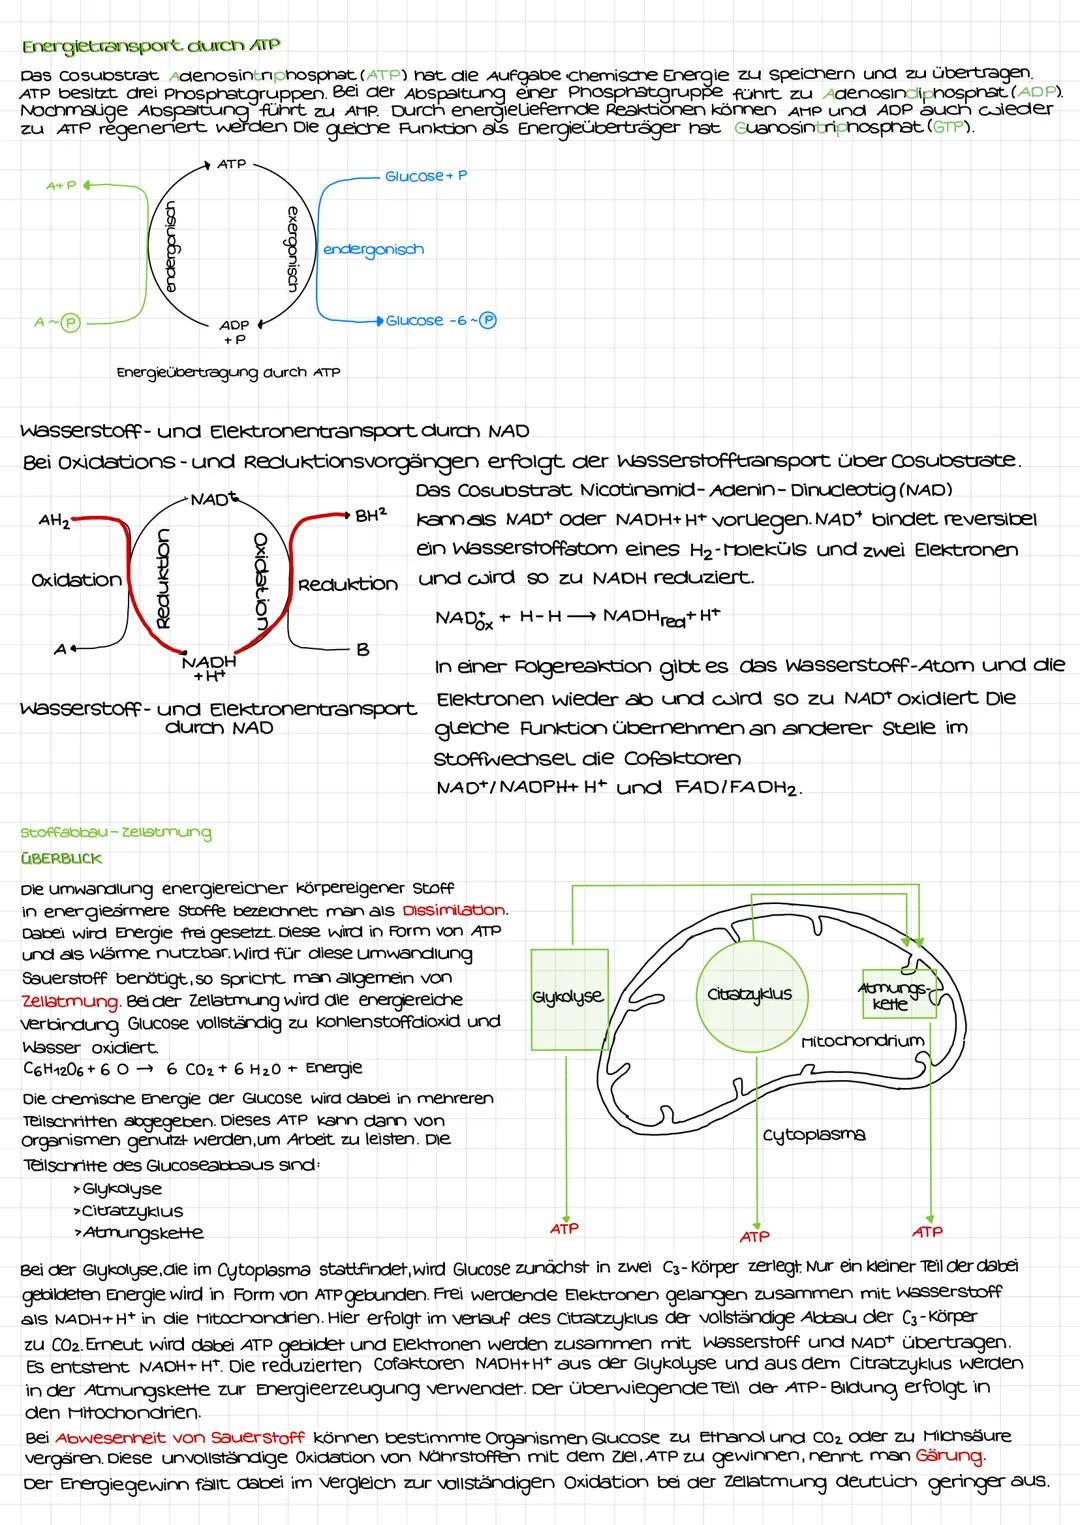 Energietransport durch ATP
Das Cosubstrat Adenosintriphosphat (ATP) hat die Aufgabe chemische Energie zu speichern und zu übertragen.
ATP besitzt drei Phosphatgruppen. Bei der Abspaltung einer Phosphatgruppe führt zu Adenosindiphosphat (ADP).
Nochmalige Abspaltung führt zu AMP. Durch energieliefernde Reaktionen können AMP und ADP auch wieder
zu ATP regeneriert werden Die gleiche Funktion als Energieüberträger hat Guanosintriphosphat (GTP).
ATP
A+P
Glucose + P
endergonisch
exergonisch
endergonisch
A ~ P
ADP
+ P
Glucose -6 ~ P
Energieübertragung durch ATP
Wasserstoff- und Elektronentransport durch NAD
Bei Oxidations - und Reduktionsvorgängen erfolgt der Wasserstofftransport über Cosubstrate.
Das Cosubstrat Nicotinamid- Adenin - Dinucleotig (NAD)
kann als NAD+ oder NADH+H+ vorliegen. NAD+ bindet reversibel
ein Wasserstoffatom eines H2-Moleküls und zwei Elektronen
und wird so zu NADH reduziert.
NAD+ox + H-H → NADHred + H+
In einer Folgereaktion gibt es das Wasserstoff-Atom und die
Elektronen wieder ab und wird so zu NAD+ oxidiert Die
gleiche Funktion übernehmen an anderer Stelle im
Stoffwechsel die Cofaktoren
NAD+/NADPH+ H+ und FAD/FADH2.
NAD+
AH2
BH2
Oxidation
Reduktion
Oxidation
Reduktion
A
B
NADH
+H+
Wasserstoff- und Elektronentransport
durch NAD
Stoffabbau - Zellatmung
ÜBERBLICK
Die Umwandlung energiereicher körpereigener Stoff
in energieärmere Stoffe bezeichnet man als Dissimilation.
Dabei wird Energie frei gesetzt. Diese wird in Form von ATP
und als Wärme nutzbar. Wird für diese Umwandlung
Sauerstoff benötigt, so spricht man allgemein von
Zellatmung. Bei der Zellatmung wird die energiereiche
Verbindung Glucose vollständig zu Kohlenstoffdioxid und
Wasser oxidiert.
C6H12O6 + 6 O → 6 CO2 + 6 H2O + Energie
Die chemische Energie der Glucose wird dabei in mehreren
Teilschritten abgegeben. Dieses ATP kann dann von
Organismen genutzt werden, um Arbeit zu leisten. Die
Teilschritte des Glucoseabbaus sind:
> Glykolyse
> Citratzyklus
> Atmungskette
Glykolyse
Citratzyklus
Atmungs-
kette
Mitochondrium
Cytoplasma
ATP
ATP
ATP
Bei der Glykolyse, die im Cytoplasma stattfindet, wird Glucose zunächst in zwei C3-Körper zerlegt. Nur ein kleiner Teil der dabei
gebildeten Energie wird in Form von ATP gebunden. Frei werdende Elektronen gelangen zusammen mit Wasserstoff
als NADH+H+ in die Mitochondrien. Hier erfolgt im verlauf des Citratzyklus der vollständige Abbau der C3-Körper
zu CO2. Erneut wird dabei ATP gebildet und Elektronen werden zusammen mit Wasserstoff und NAD+ übertragen.
Es entsteht NADH+ H+. Die reduzierten Cofaktoren NADH+H+ aus der Glykolyse und aus dem Citratzyklus werden
in der Atmungskette zur Energieerzeugung verwendet. Der überwiegende Teil der ATP-Bildung erfolgt in
den Mitochondrien.
Bei Abwesenheit von Sauerstoff können bestimmte Organismen Glucose zu Ethanol und CO2 oder zu Milchsäure
vergären. Diese unvollständige Oxidation von Nährstoffen mit dem Ziel, ATP zu gewinnen, nennt man Gärung.
Der Energiegewinn fällt dabei im Vergleich zur vollständigen Oxidation bei der Zellatmung deutlich geringer aus.